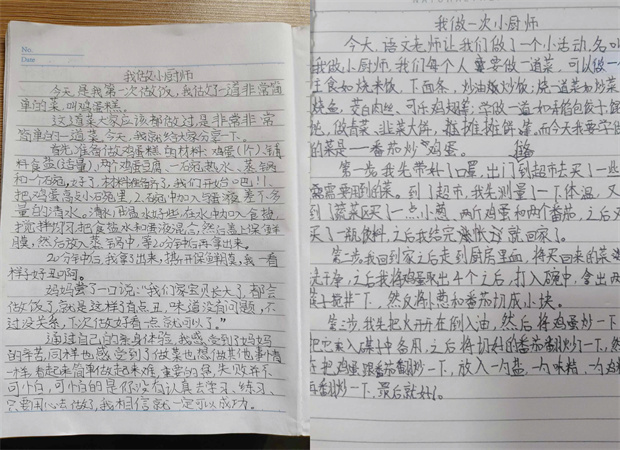 No.
Date
我做小厨师
今天是我第一次做饭,我做了一道非常简
单的菜,叫鸡蛋糕。
这道菜大家应该都做过,是非常非常
简单的一道菜,今天,我就给大家分享一下。
首先准备做鸡蛋糕的材料:鸡蛋(1个),铺料
食盐(适量),两个鸡蛋,一石碗热水、蒸锅
和一个石碗,好了,材料准备齐了,我们开始吧!1.
把鸡蛋高入小石碗里,2.碗中加入与蛋液差不多
量的清水。清水也温水好些,在水中加入食盐,
搅拌均匀,把食盐水和蛋液混合,然后盖上保鲜
膜,然后放入蒸锅中,等20分钟后再拿出来。
20分钟后,我拿了出来,揭开保鲜膜,我一看
样子好丑阿。
妈妈尝了一口说:“我们家宝贝长大了,都会
做饭了,就是这样子有点丑,味道没有问题,不
过没关系,下次做好看一点就可以了。”
通过自己的亲身体验,我感受到了妈妈
的辛苦,同样也感受到了做菜也想做其他事情
一样,看起来简单做起来难,重要的是,失败并不
可小白,可小白的是你没有认真去学习、练习、
只要用心去做了,我相信就一定可以成功。
我做一次小厨师
今天,语文老师让我们做了一个小活动,名叫
我做小厨师,我们每个人需要做一道菜,可以做一
主食如烧米饭、下面条,炒油嫩炒饭;烧一道菜如炒菜
烧鱼,茭白肉丝,可乐鸡翅;学做一道如味馅包饺子饼
地,做青菜、韭菜大饼,摊饼,而今天我要学做
的菜是——番茄炒鸡蛋。
第一步,我先带补了口罩,出门到超市去买了一些
需要用到的菜。到了超市,我先测量一下体温,又
到了蔬菜区买了一点小葱,两个鸡蛋和两个番茄,之后又
买了一瓶饮料,之后我结完账就回家了。
第二步,我回到家之后走到厨房里面,将买回来的菜
洗干净,之后我将鸡蛋取出4个之后,打入碗中,拿出两
筷子搅拌一下,然后将小葱和番茄切成小块。
第三步,我先把火开开在倒入油,然后将鸡蛋炒一下
把它乘入碟中备用,之后将切好的番茄翻炒一下,然
在把鸡蛋跟番茄翻炒一下,放入一勺盐一勺味精,一勺鸡精
再翻炒一下,最后就好了。